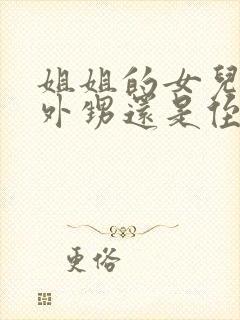 姐姐的女兒
外甥還是侄
更俗